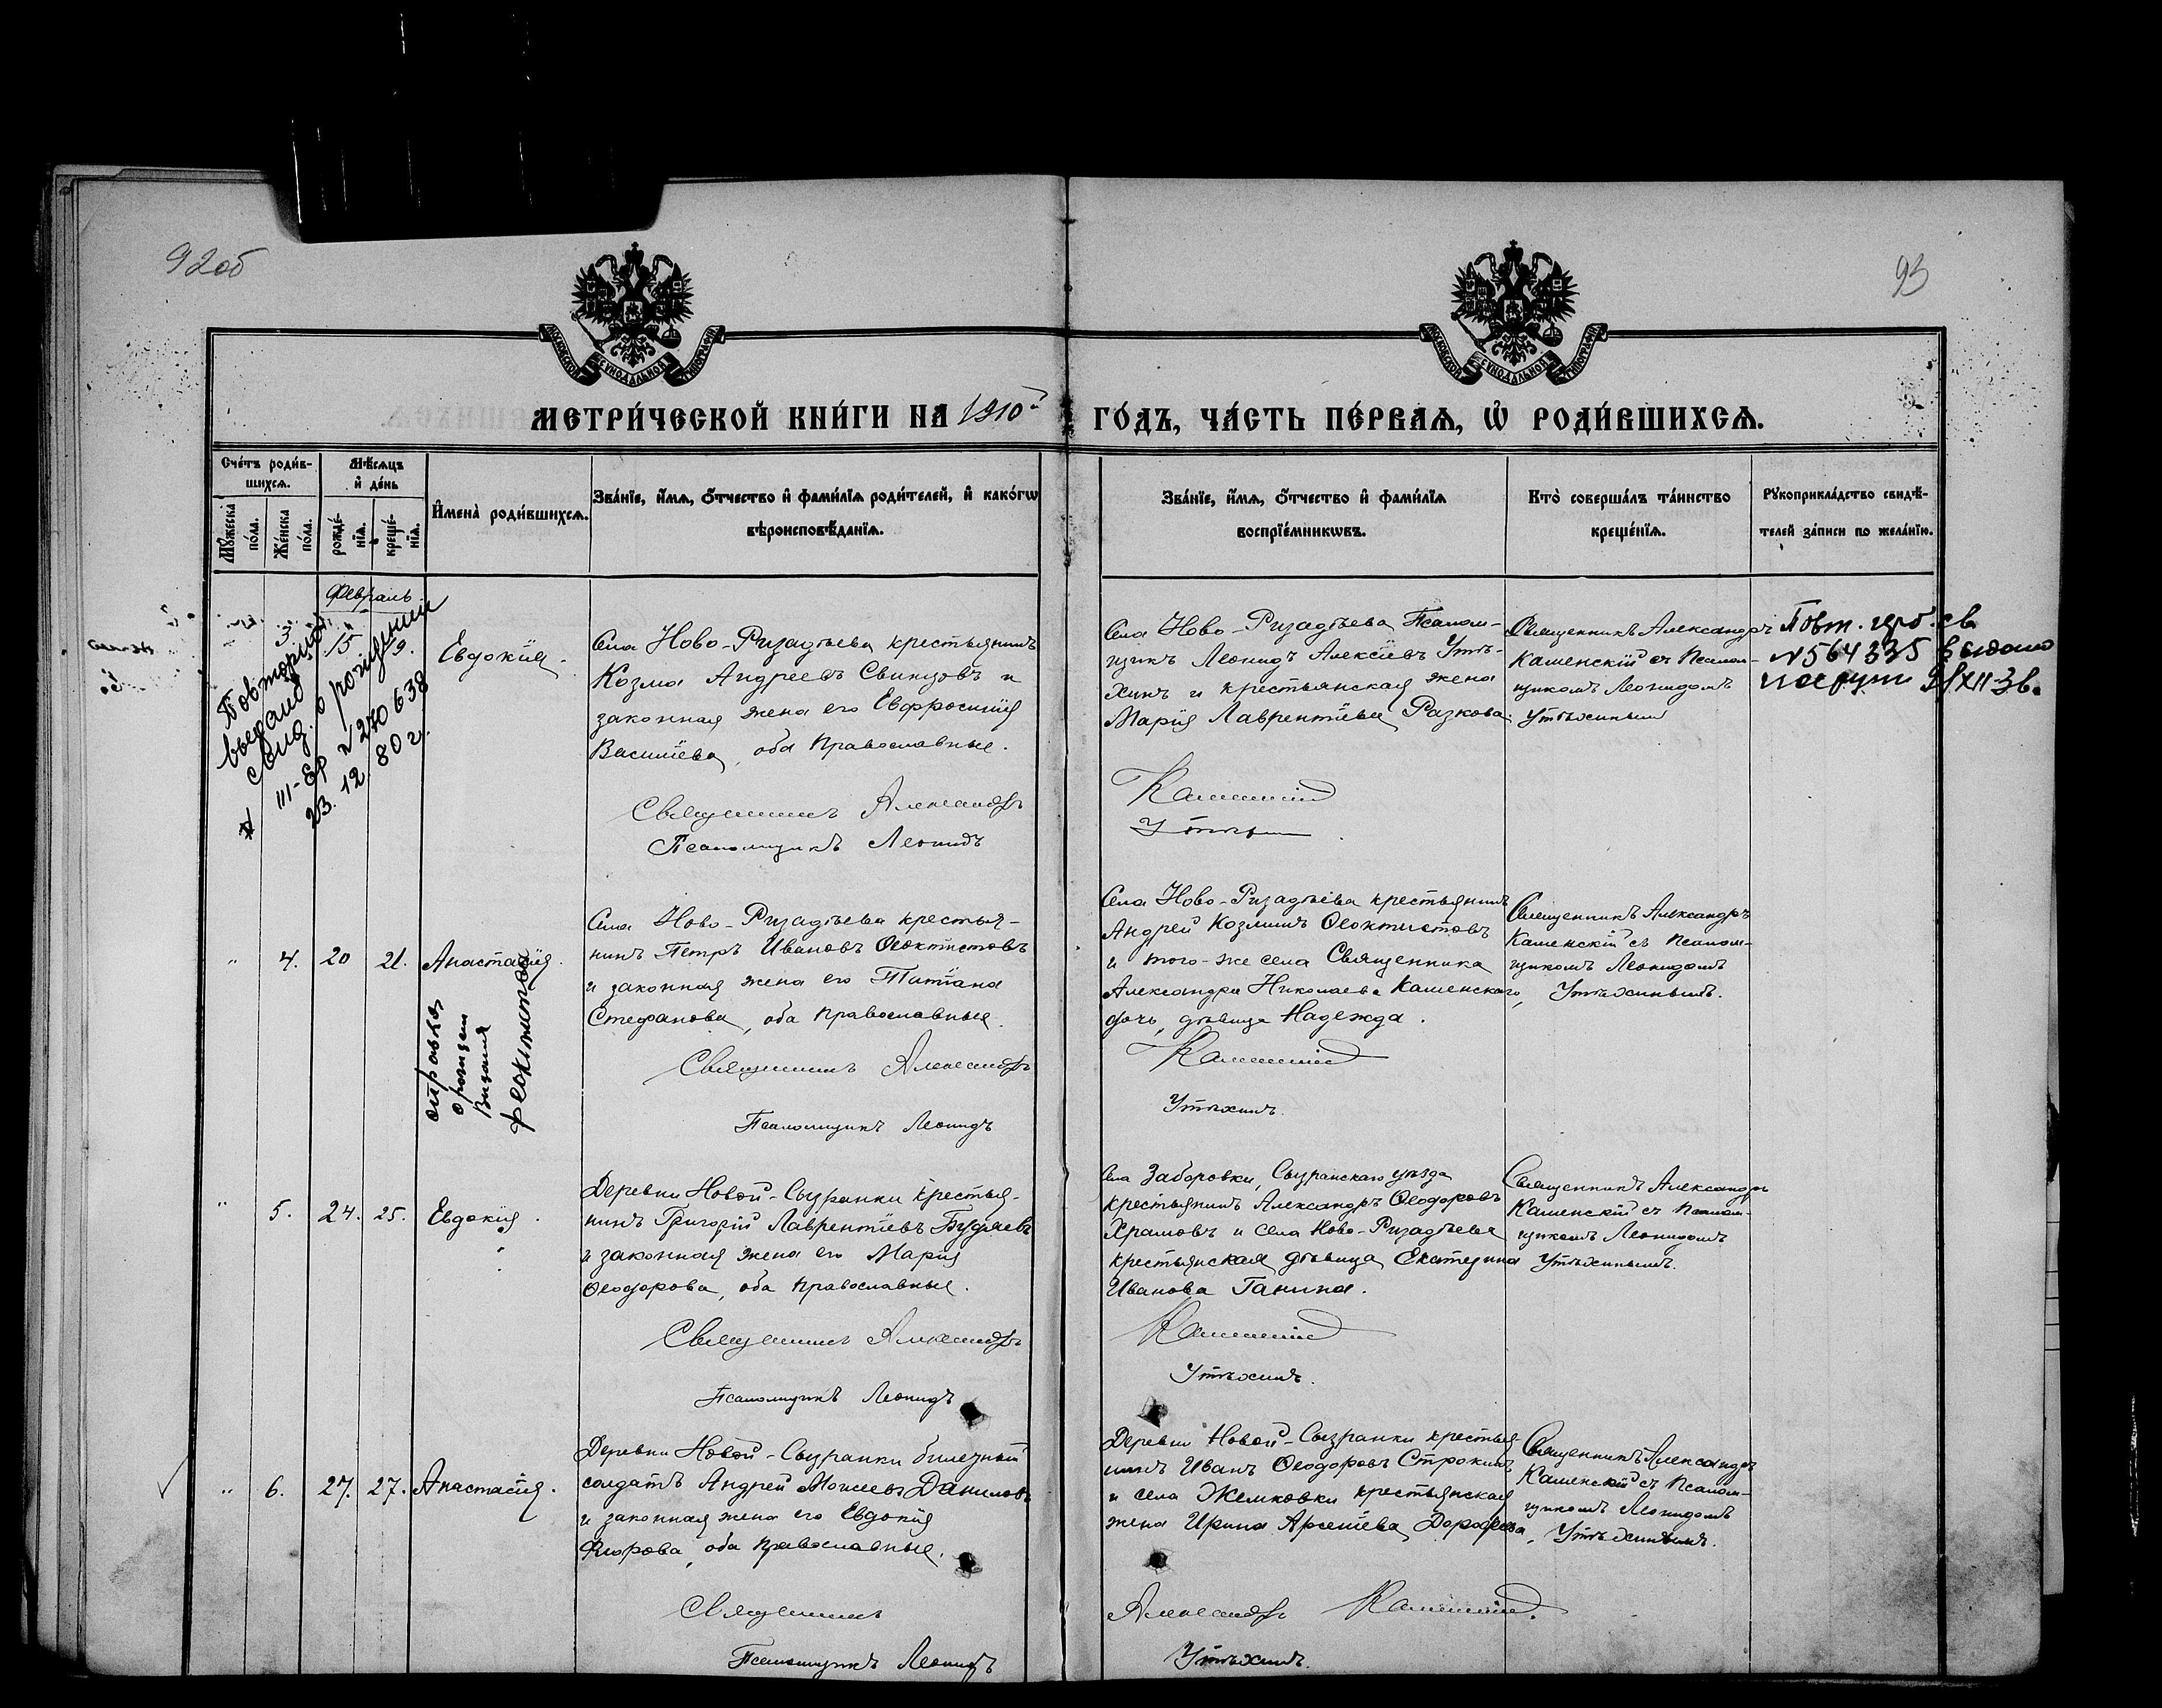 92об
93
МОСКОВСКОЙ СѴНОДАЛЬНОЙ ТИПОГРАФІИ
МОСКОВСКОЙ СѴНОДАЛЬНОЙ ТИПОГРАФІИ
МЕТРИ́ЧЕСКОЙ КНИ́ГИ НА 1910й ГО́ДЪ, ЧА́СТЬ ПЕ́РВАѦ, Ѡ҆ РОДИ́ВШИХСѦ.
Сче́тъ роди́в-
шихсѧ.
Мѣ́сѧцъ
и҆ де́нь
Мꙋ́жеска
по́ла.
Же́нска
по́ла.
рожде́-
нїѧ.
креще́-
нїѧ.
И҆мена̀ роди́вшихсѧ.
Зва́нїе, и҆́мѧ, ѻ҆́тчество и҆ фами́лїѧ роди́телей, и҆ како́гѡ
вѣроисповѣ́данїѧ.
Зва́нїе, и҆́мѧ, ѻ҆́тчество и҆ фами́лїѧ
воспрїе́мникѡвъ.
Кто̀ соверша́лъ та́инство
креще́нїѧ.
Рꙋкоприкла́дство свидѣ́-
телей за́писи по жела́нїю.
Февраль
3. 15 19.
Евдокія.
Повторный
выдано
свид. о рождении
III-ЕР № 270638
23.12.80г.
Села Ново-Ризадѣева крестьянинъ
Козма Андреевъ Свинцовъ и
законная жена его Евфросинія
Василіева, оба православные.
Священникъ Александръ
Псаломщикъ Леонидъ
Села Ново-Ризадѣева Псалом-
щикъ Леонидъ Алексіевъ Утѣ-
хинъ и крестьянская жена
Марія Лаврентіева Разкова.
Каменскій
Утѣхинъ
Священникъ Александръ
Каменскій съ Псалом-
щикомъ Леонидомъ
Утѣхинымъ
Повт. герб. св.
№564335 выдано
„ 4. 20 21. Анастасія.
справка
о рожден
Феоктистова
Села Ново-Ризадѣева крестья-
нинъ Петръ Ивановъ Ѳеоктистовъ
и законная жена его Татіана
Стефанова, оба православные.
Священникъ Александръ
Псаломщикъ Леонидъ
Села Ново-Ризадѣева крестьянинъ
Андрей Козминъ Ѳеоктистовъ
и того-же села Священника
Александра Николаева Каменскаго,
дочь, дѣвица Надежда.
Каменскій
Утѣхинъ.
Священникъ Александръ
Каменскій съ Псалом-
щикомъ Леонидомъ
Утѣхинымъ.
„ 5. 24. 25. Евдокія.
Деревни Новой-Сызранки крестья-
нинъ Григорій Лаврентіевъ Будаевъ
и законная жена его Марія
Ѳеодорова, оба православные.
Священникъ Александръ
Псаломщикъ Леонидъ
Села Заборовки, Сызранскаго уѣзда
крестьянинъ Александръ Ѳеодоровъ
Храмовъ и села Ново-Ризадѣева
крестьянская дѣвица Екатерина
Иванова Ганина.
Каменскій
Утѣхинъ.
Священникъ Александръ
Каменскій съ Псалом-
щикомъ Леонидомъ
Утѣхинымъ.
„ 6. 27. 27. Анастасія.
Деревни Новой-Сызранки билетный
солдатъ Андрей Моисеевъ Даниловъ
и законная жена его Евдокія
оба православные.
Священникъ
Псаломщикъ Леонидъ
Деревни Новой-Сызранки крестья-
нинъ Иванъ Ѳеодоровъ Строкинъ
и села Жемковки крестьянская
жена Ирина Арсеніева Дорофеева,
Александръ Каменскій.
Утѣхинъ.
Священникъ Александръ
Каменскій съ Псалом-
щикомъ Леонидомъ
Утѣхинымъ.